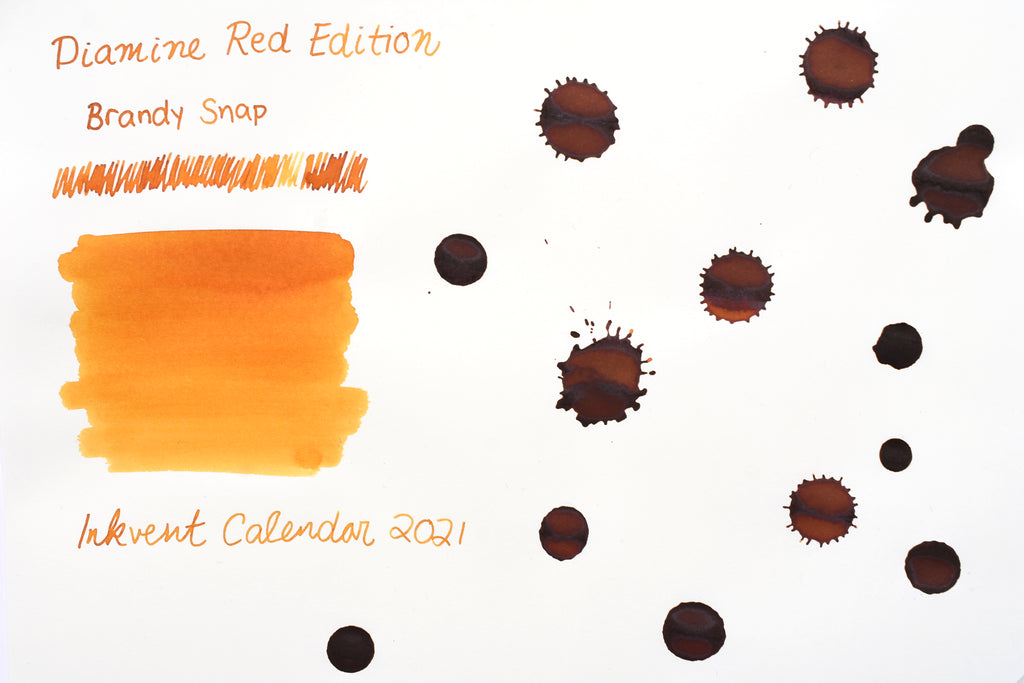 Diamine Red Edition
Brandy Snap
Inkvent Calendar 2021